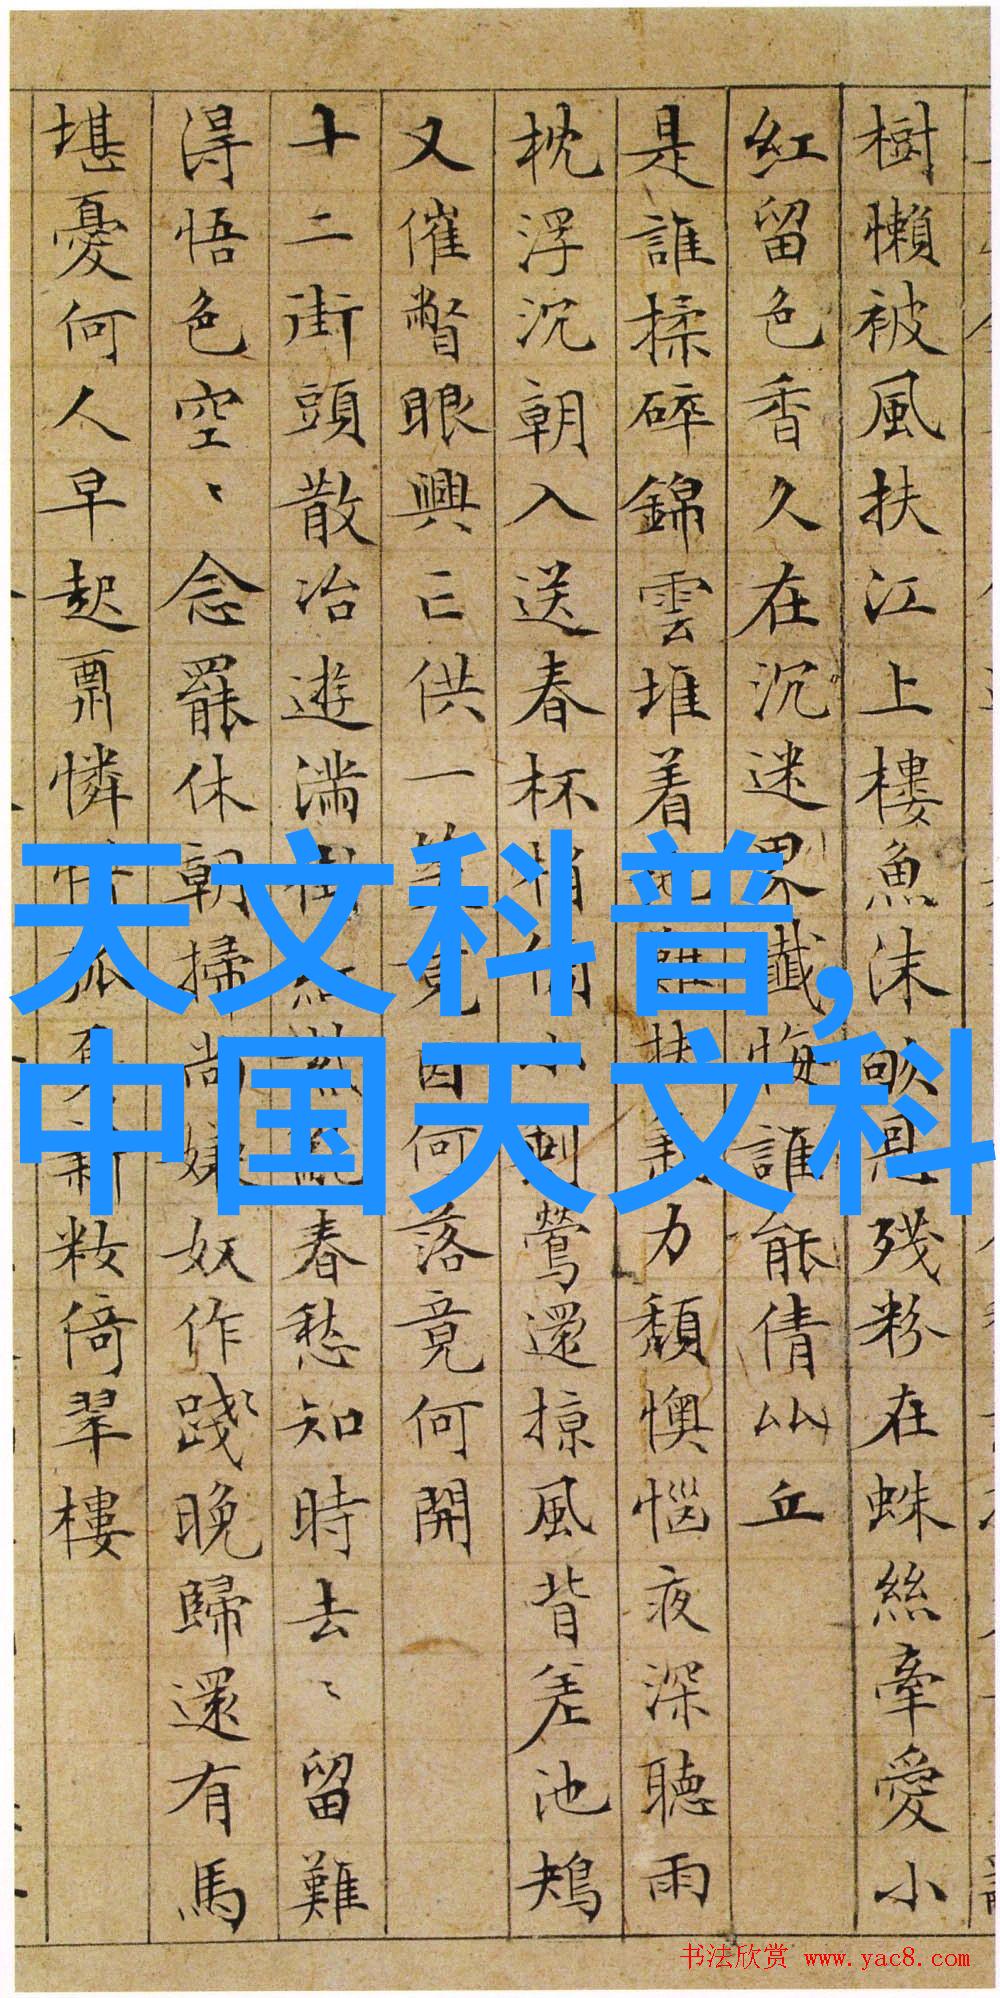 樹懶被風扶江上樓魚沫殘粉在蛛絲牽愛小
紅留色香久在沉迷界懺悔誰能倩比丘
是誰揉碎錦雲堆着力頹懊惱夜深聽雨
枕浮沉朝入送春杯梢鶯還掠風背差池鴂
又催瞥眼興亡供一何落竟何開
十二街頭散冶遊滿樹春愁知時去〻留難
得悟色空〻念罷休朝掃尚嫌奴作踐晚歸還有馬
堪憂何人早起憐新妝倚翠樓
天文科普,
中国天文科
书法欣赏 www.yac8.com